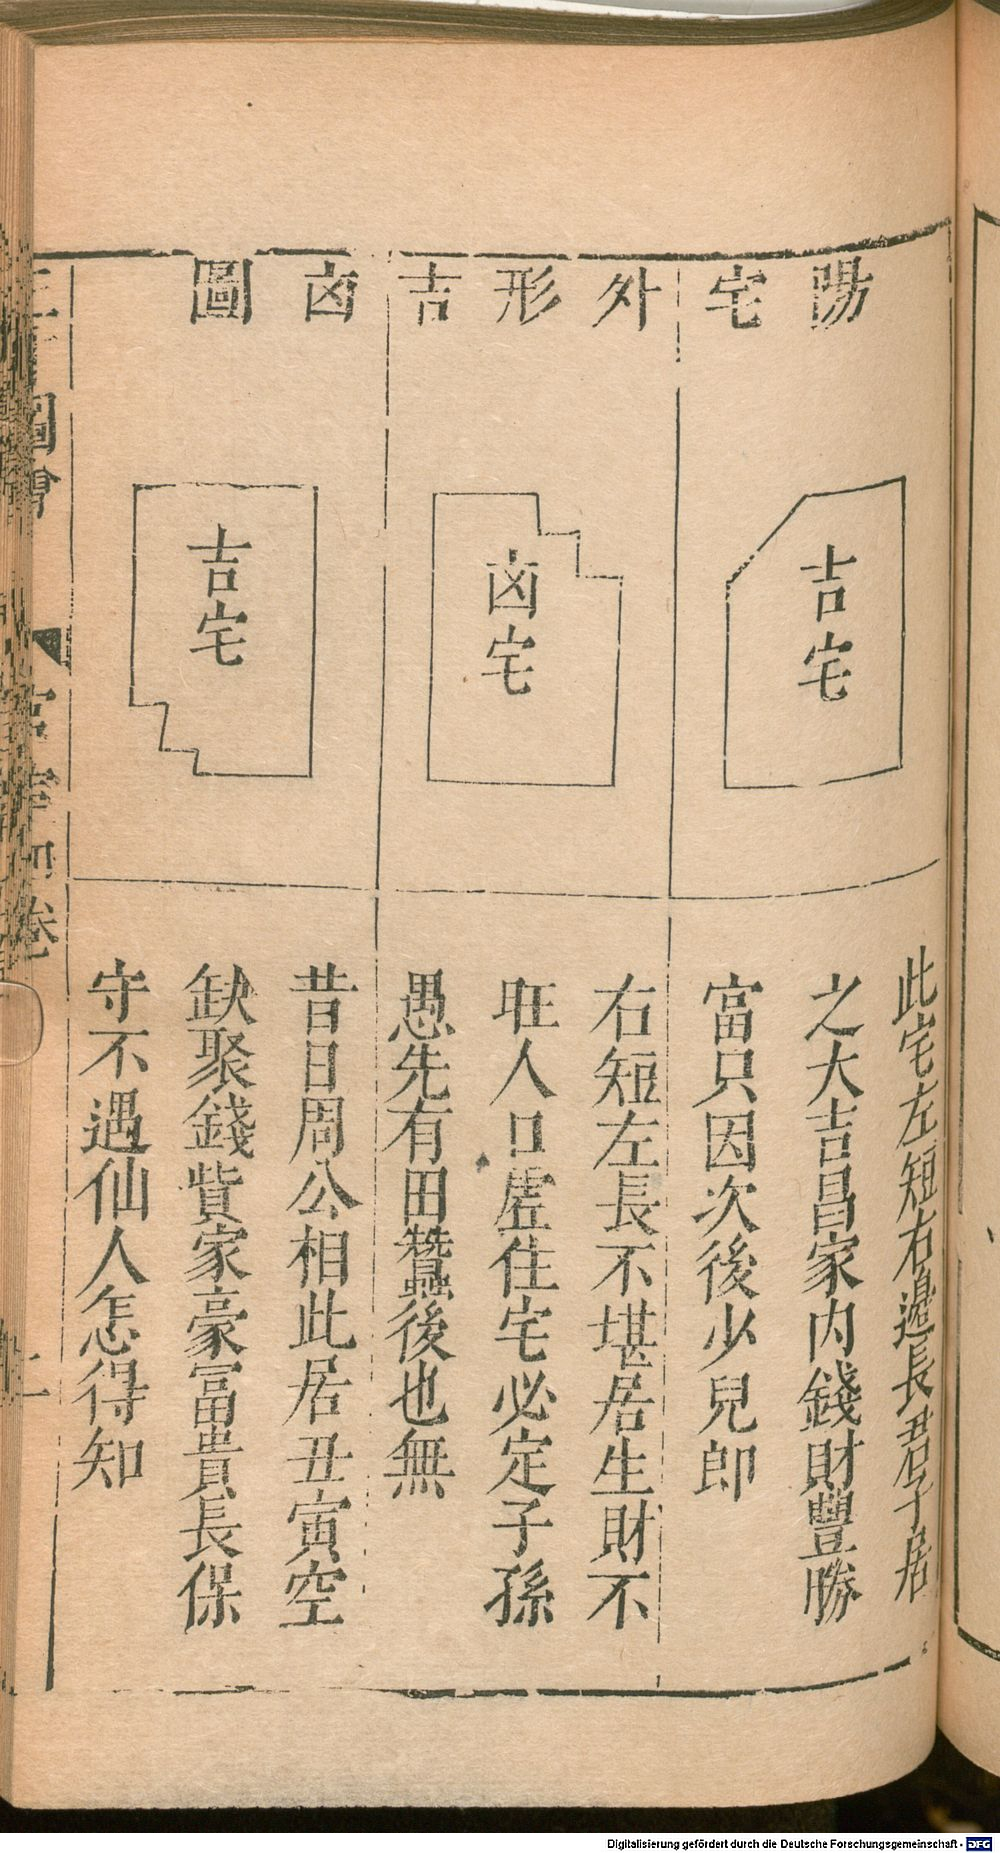 陽宅外形吉㐫圖
吉宅
此宅左短右邊長君子居
之大吉昌家内錢財豐勝
富只因次後少兒郎
㐫宅
右短左長不堪居生財不
旺人口虛住宅必定子孫
愚先有田蠶後也無
吉宅
昔日周公相此居丑寅空
缺聚錢貲家豪冨貴長保
守不遇仙人怎得知
圖會
宫室四卷
Digitalisierung gefördert durch die Deutsche Forschungsgemeinschaft - DFG